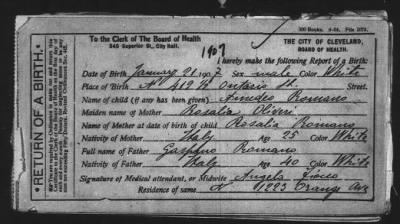 300 Books.
To the Clerk of The Board of Health
345 Superior St., City Hall.
THE CITY OF CLEVELAND,
BOARD OF HEALTH.
1907
RETURN OF A BIRTH.
I hereby make the following Report of a Birth:
Date of Birth January 21 1907 Sex male Color White
Place of Birth Ontario St. Street.
Name of child (if any has been given) Amedeo Romano
Maiden name of Mother Rosalia Oliveri
Name of Mother at date of birth of child Rosalia Romano
Nativity of Mother Italy Age 25 Color White
Full name of Father Romano
Nativity of Father Italy Age 40 Color White
Signature of Medical attendant, or Midwife Angela
Residence of same 1223 Orange Ave